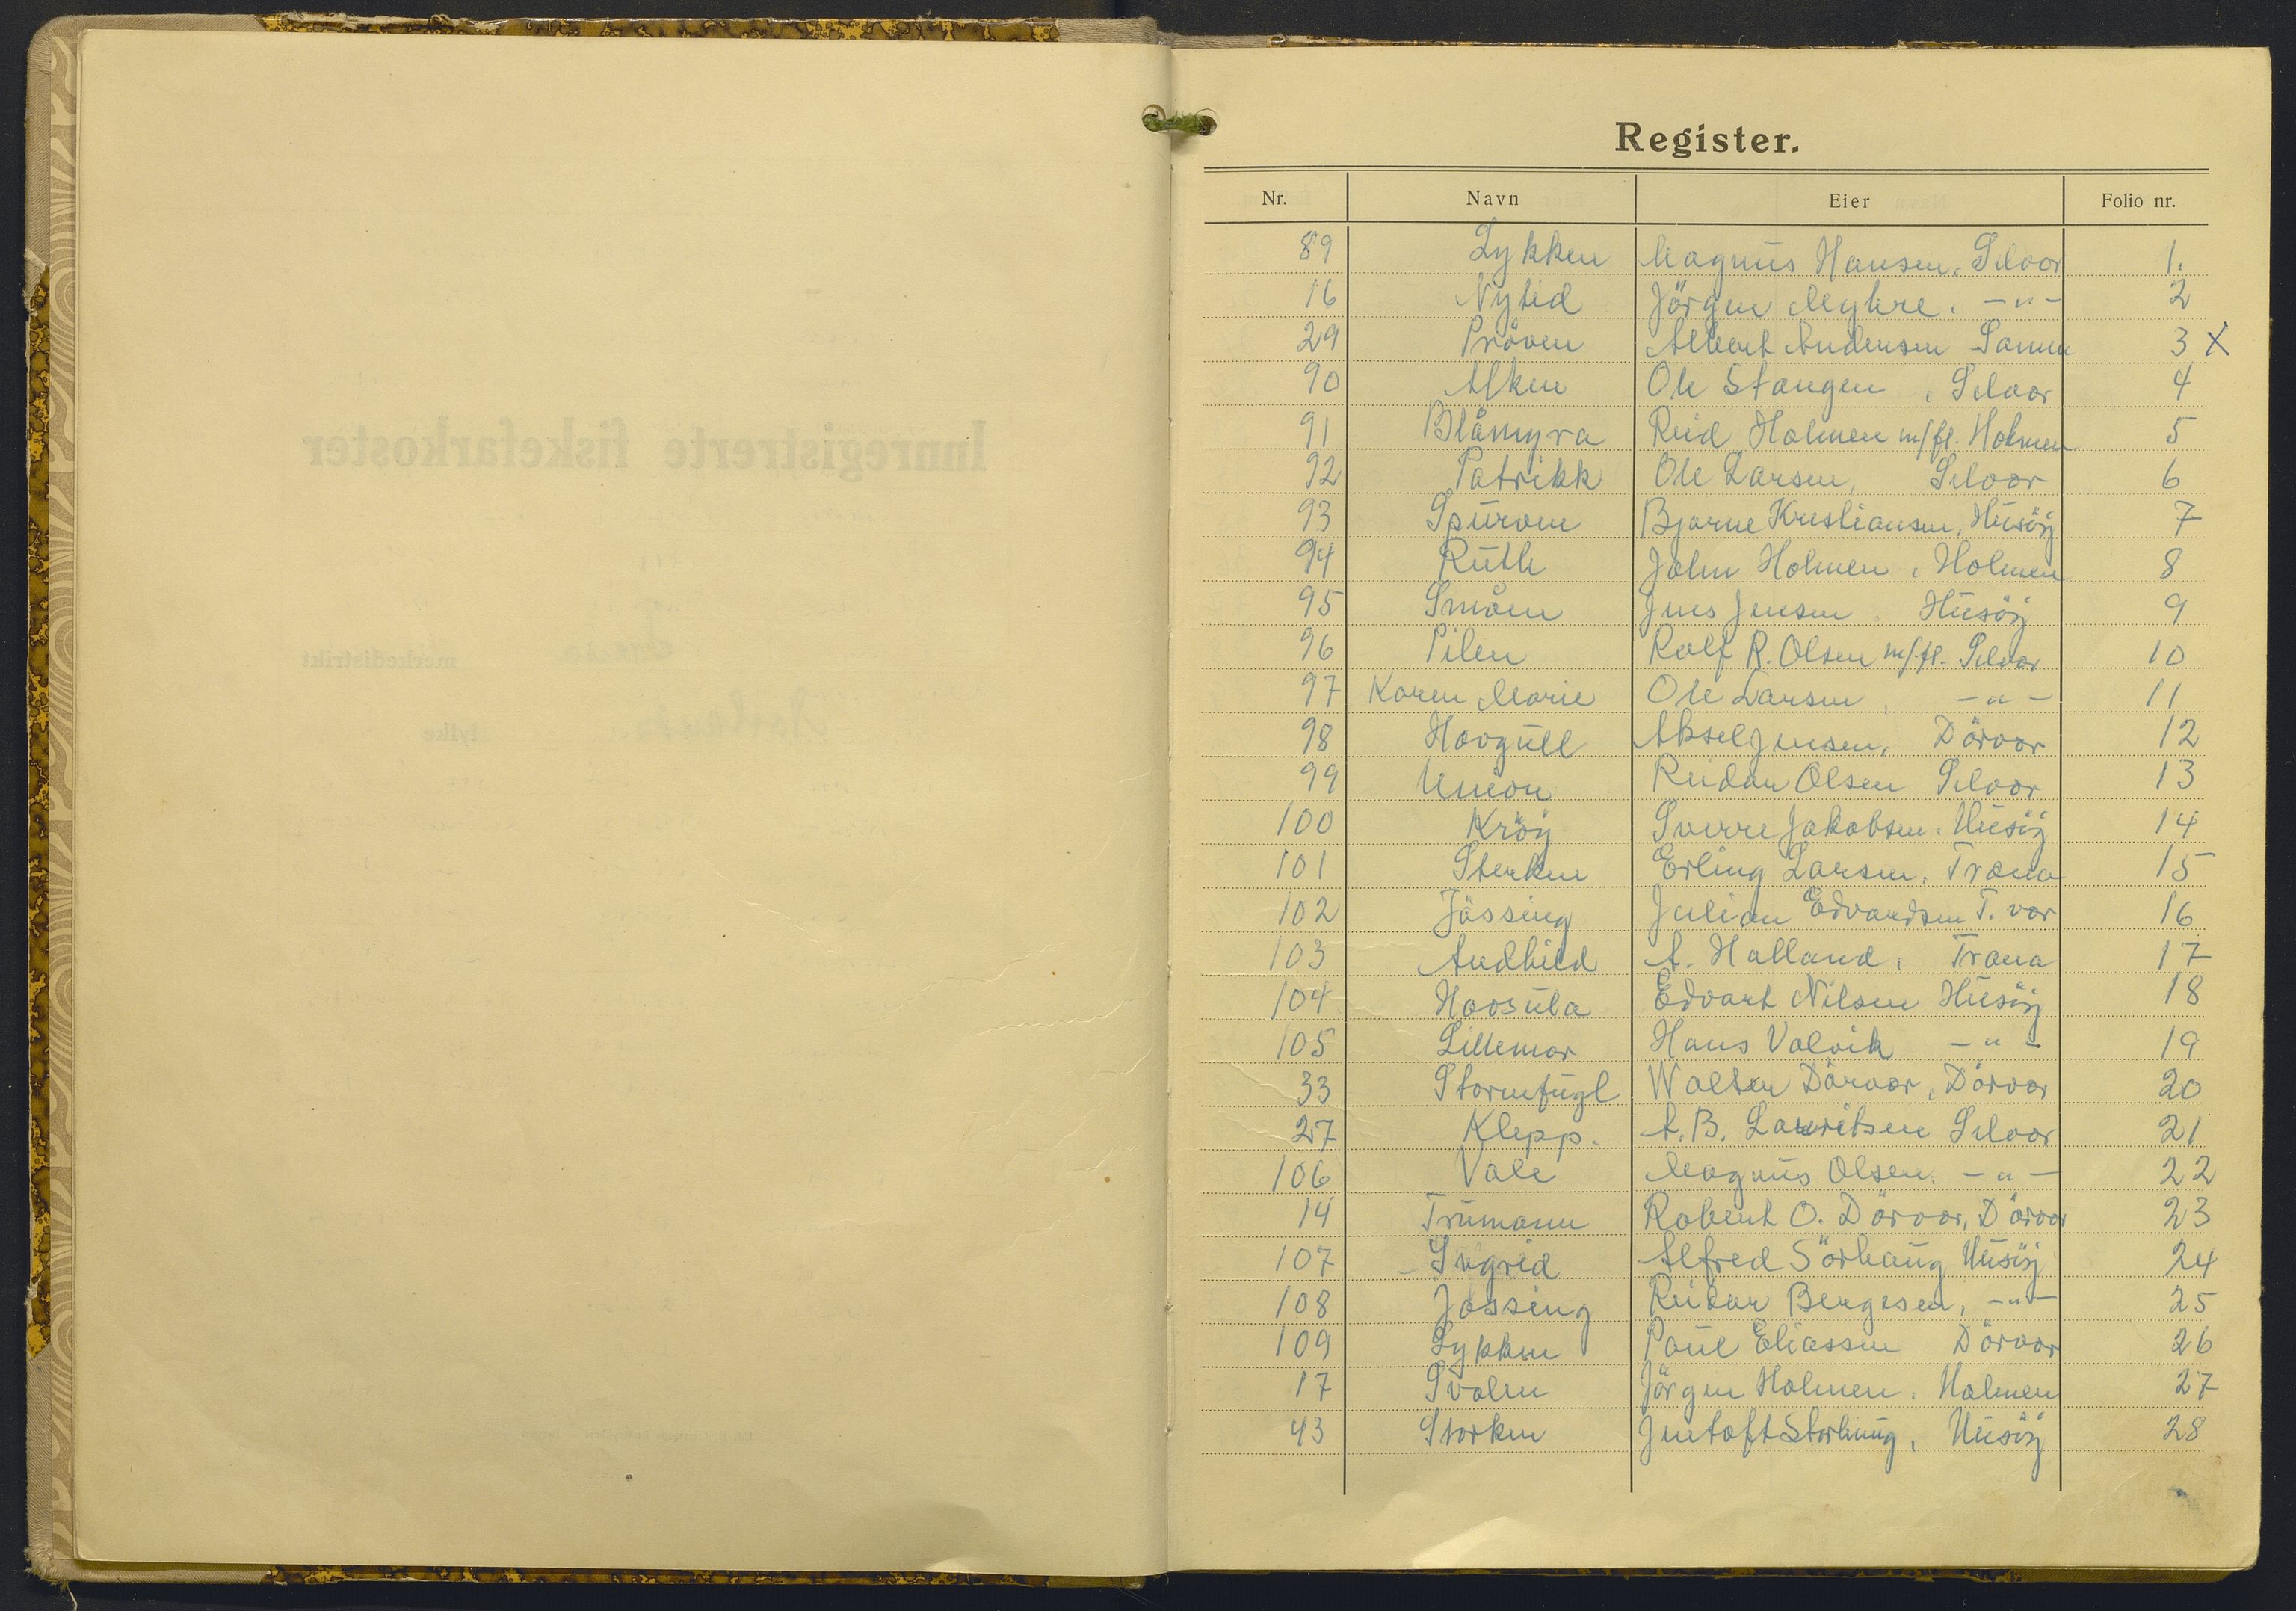 Register.
Nr. Navn Eier Folio nr.
89 Lykken Magnus Hansen, Selvær 1.
16 Nytid Jörgen Myhre. –"– 2
29 Pröven Albert Andersen Sanna 3 X
90 Alken Ole Stangen, Selvær 4
91 Blåmyra Reid Holmen m/fl. Holmen 5
92 Patrikk Ole Larsen, Selvær 6
93 Spurven Bjarne Kristiansen, Husöy 7
94 Ruth John Holmen, Holmen 8
95 Småen Jens Jensen, Husöy 9
96 Pilen Rolf R. Olsen m/fl. Selvær 10
97 Karen Marie Ole Larsen, –"– 11
98 Havgull Aksel Jensen, Dörvær 12
99 Union Reidar Olsen Selvær 13
100 Kröy Sverre Jakobsen. Husöy 14
101 Sterken Erling Larsen, Træna 15
102 Jössing Julian Edvardsen T. vær 16
103 Audhild A. Halland, Træna 17
104 Havsula Edvart Nilsen Husöy 18
105 Lillemor Hans Valvik –"– 19
33 Stormfugl Walter Dörvær, Dörvær 20
27 Klepp. A. B. Lauritsen Selvær 21
106 Vale Magnus Olsen. –"– 22
14 Trumann Robert O. Dörvær, Dörvær 23
107 Ingrid Alfred Sörhaug Husöy 24
108 Jossing Reidar Bergesen, –"– 25
109 Lykken Paul Eliassen Dörvær 26
17 Svalen Jörgen Holmen. Holmen 27
43 Storken Jentoft Storhaug, Husöy 28
Innregistrerte fiskefarkoster
merkedistrikt
Nordland fylke